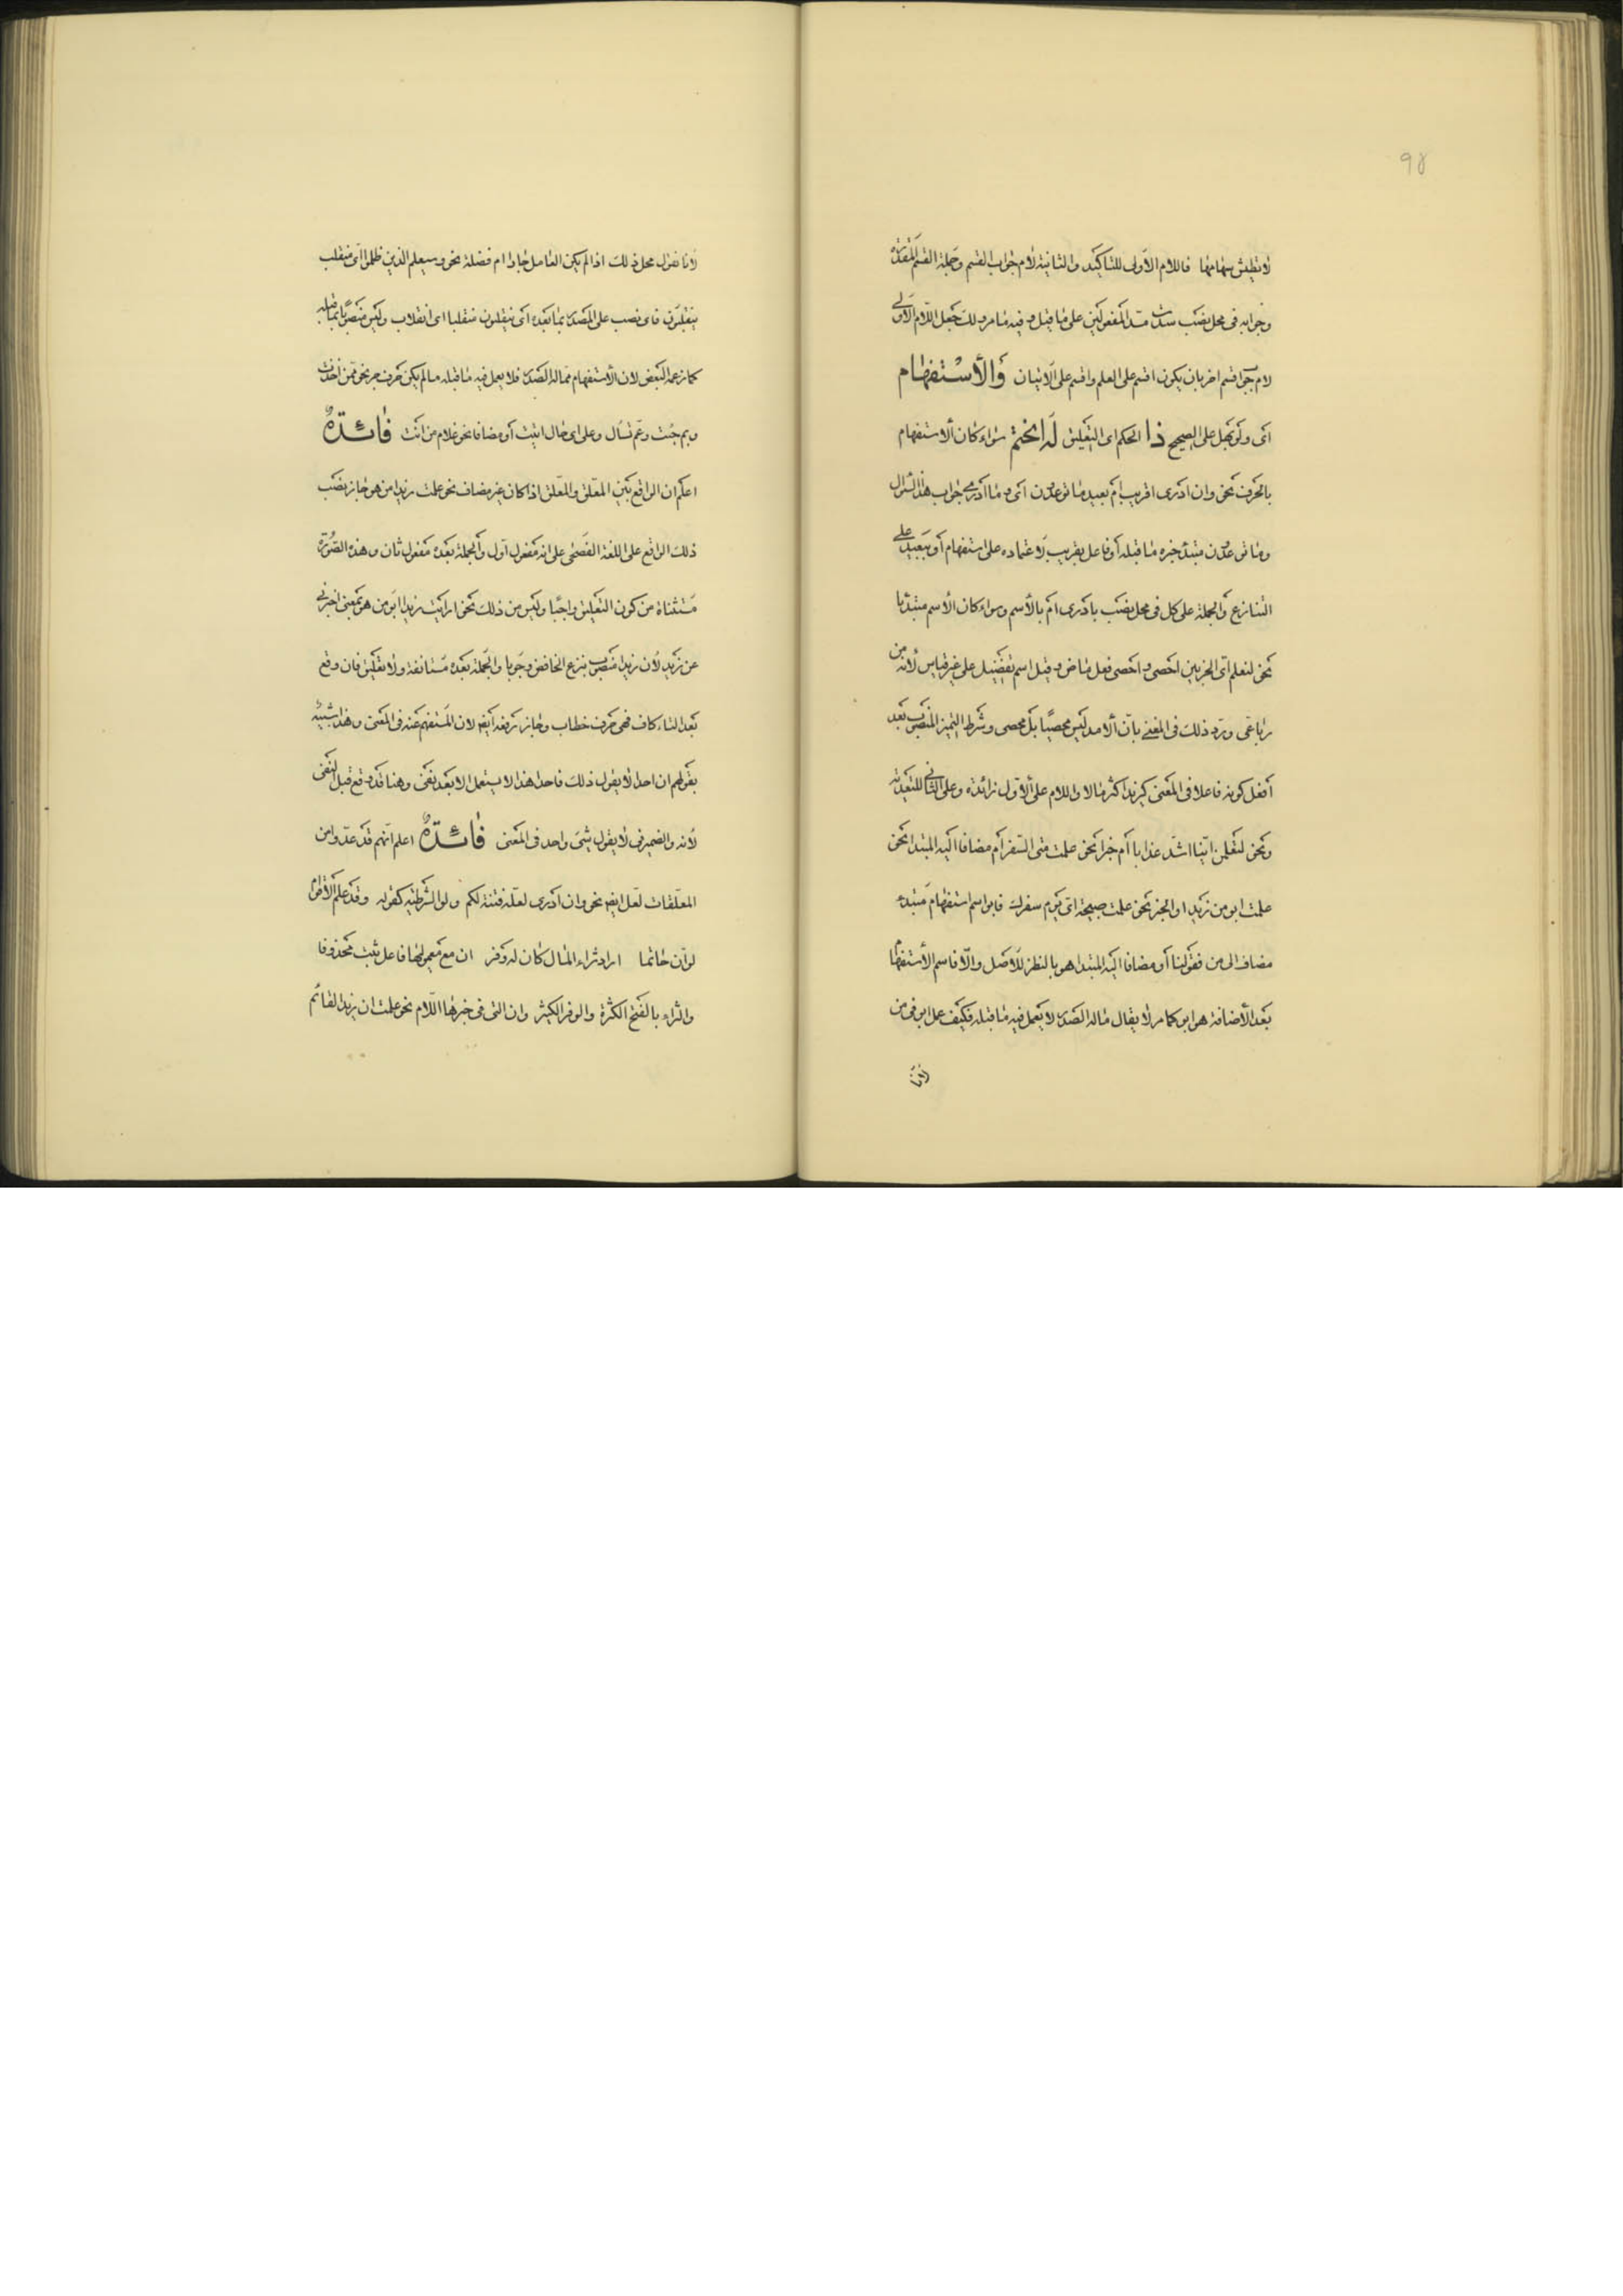 ۹۴
لا تطيش سهامها فاللام الاولى للتاكيد والثانية لام جواب القسم وجملة القسم المقدّر
وجوابه فى محل نصب سدّت مسدّ المفعولين على ما قيل وفيه ما مرّ ولك جعل اللّام الاولى
لام جواب قسم اخر بان يكون اقسم على العلم واقسم على الاتيان وَالأسْتفهَام
اى ولو بهل على الصحيح ذا الحكم اى التعليق لَه انحتم سواء كان الاستفهام
بالحرف نحو وان ادرى اقريب ام بعيد ما توعدون اى وما ادرى جواب هذا السؤال
وما توعدون مبتدأ خبره ما قبله او فاعل بقريب لاعتماده على استفهام او ببعيد على
التنازع والجملة على كل فى محل نصب بادرى ام بالأسم وسواء كان الأسم مبتدأ
نحو لنعلم اىّ الحزبين احصى واحصى فعل ماض وقيل اسم تفضيل على غير قياس لأنه من
رباعى وردّ ذلك فى المغنى بانّ الأمد ليس محصيًا بل محصى وشرط التميز المنصوب بعد
أفعل كونه فاعلا فى المعنى كزيد اكثر مالا واللام على الأوّل زائدة وعلى الثانى للتعدية
ونحو لتعلمن ايّنا اشدّ عذابا أم خبرا نحو علمت متى السّفر أم مضافا اليه المبتدا نحو
علمت ابو من زيد او الخبر نحو علمت صبيحة اىّ يوم سفرك فابو اسم استفهام مبتدء
مضاف الى من فقولنا أو مضافا اليه المبتدا هو بالنظر للأصل والّا فاسم الأستفهام
بعد الأضافة هو ابو كما مر لا يقال ماله الصّدر لا يعمل فيه ما قبله فكيف عمل ابو فى من
لأنا
لأنا نقول محل ذلك اذا لم يكن العامل جارا ام فضلة نحو وسيعلم الذين ظلموا اىّ منقلب
ينقلبون فاى نصب على المصدر بما بعده أى ينقلبون منقلبا اى انقلاب وليس منصوبًا بما قبله
كما زعمه البعض لان الأستفهام ممّا له الصّدر فلا يعمل فيه ما قبله ما لم يكن حرف جر نحو ممّن اخذت
وبم جئت وعمّ تسأل وعلى اى حال اتيت أو مضافا نحو غلام من انت فَائدةٌ
اعلم ان الواقع بين المعلّق والمعلّق اذا كان غير مضاف نحو علمت زيدا من هو جاز نصب
ذلك الواقع على اللغة الفصحى على انه مفعول اوّل والجملة بعده مفعول ثان وهذه الصّورة
مستثناة من كون التعليق واجبًا وليس من ذلك نحو ارايت زيدا ابو من هو بمعنى اخبرنى
عن زيد لأن زيدا منصوب بنزع الخافض وجوبا والجملة بعده مستانفة ولا تعليق فان وقع
بعد التاء كاف فهى حرف خطاب وجاز رفعه ايضا لان المستفهم عنه فى المعنى وهذا شبيه
بقولهم ان احدا لا يقول ذلك فاحدا هذا لا يستعمل الا بعد نفى وهنا قد وقع قبل النفى
لأنه والضمير فى لا يقول شئ واحد فى المعنى فَائدةٌ اعلم انّهم قد عدّوا من
المعلّقات لعل ايضا نحو وان ادرى لعلّه فتنة لكم ولو الشرطية كقوله وقد علم الأقوام
لو انّ حاتما اراد ثراء المال كان له وفر ان مع معمولها فاعل ثبت محذوفا
والثراء بالفتح الكثرة والوفر الكثير وان التى فى خبرها اللّام نحو علمت ان زيدا لقائم